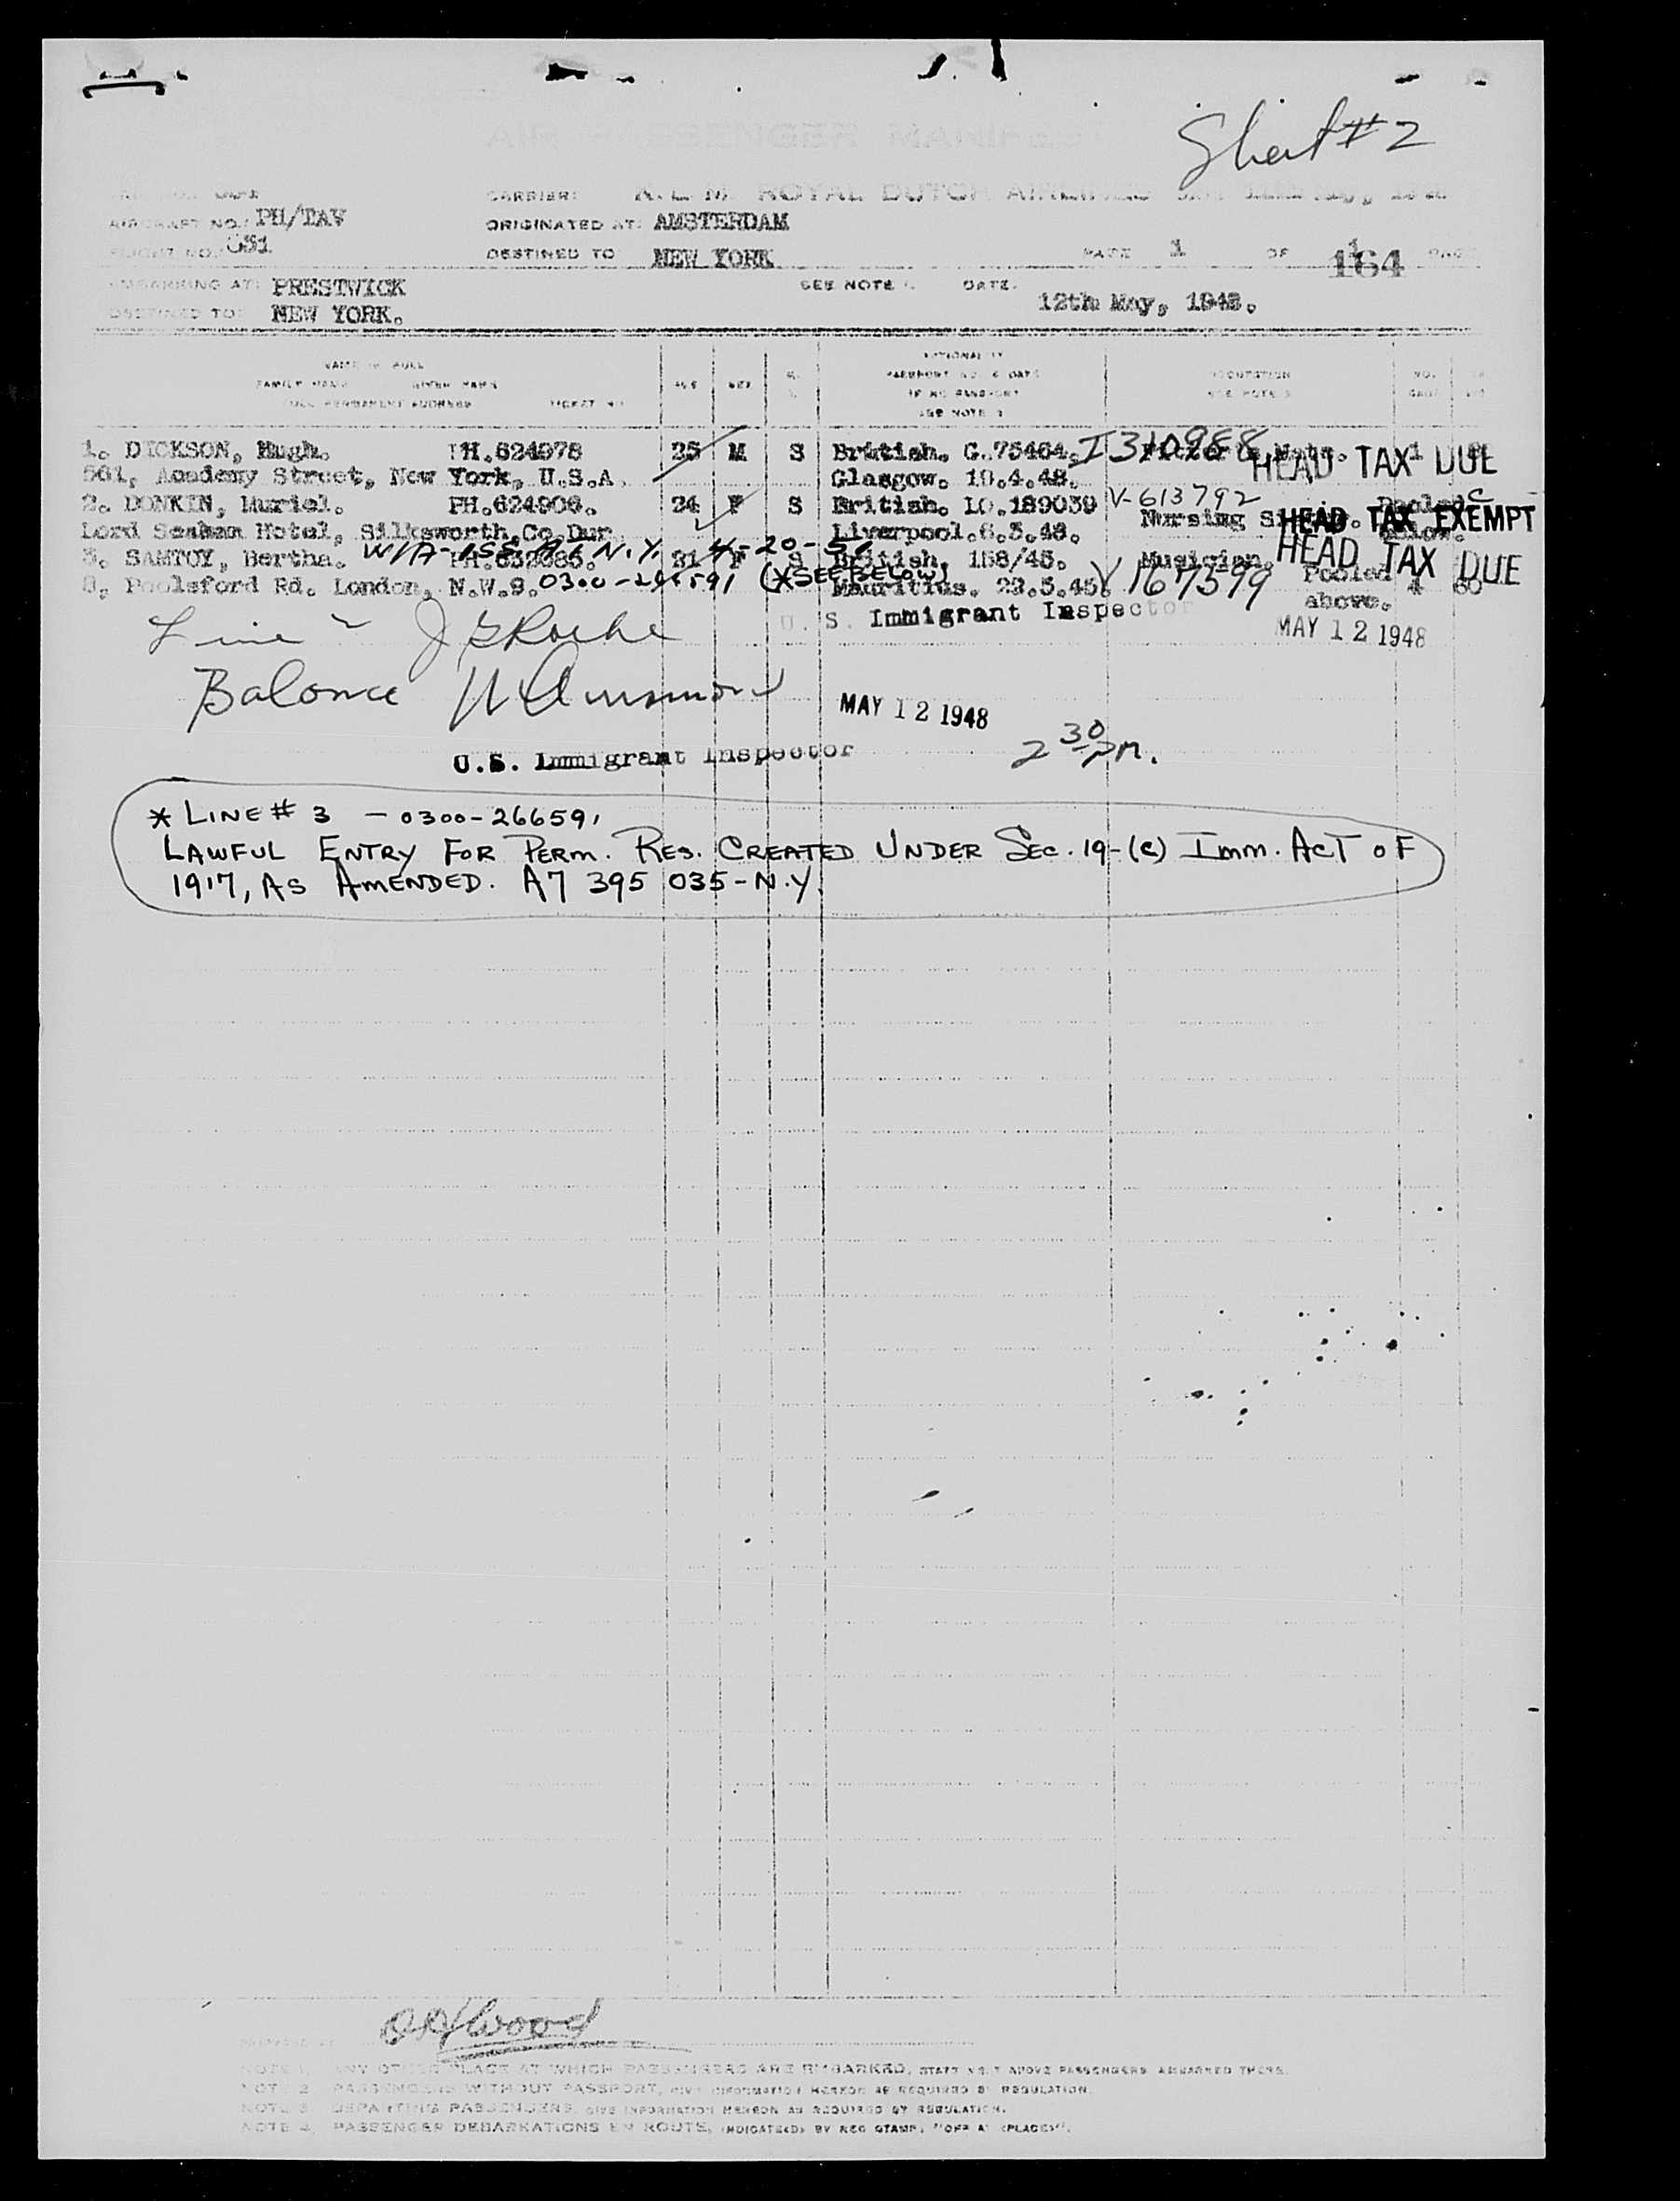 Sheet # 2
AIR PASSENGER MANIFEST
CARRIER: K. L. M. ROYAL DUTCH AIRLINES
AIRCRAFT NO.: PH/TAV ORIGINATED AT: AMSTERDAM
FLIGHT NO.: 651 DESTINED TO NEW YORK PAGE 1 OF 1 PAGE
164
EMBARKING AT: PRESTWICK SEE NOTE DATE. 12th May, 1948.
DESTINED TO: NEW YORK.
NAME IN FULL
FAMILY NAME GIVEN NAME
FULL PERMANENT ADDRESS TICKET NO
AGE SEX
NATIONALITY
PASSPORT NO. & DATE
IF NO PASSPORT
SEE NOTE
OCCUPATION
SEE NOTE
NO.
1. DICKSON, Hugh. PH.624978 25 M S British. G.75464. I310988 HEAD TAX DUE
561, Academy Street, New York, U.S.A. Glasgow. 19.4.48.
2. DONKIN, Muriel. PH.624906. 24 F S British. LO.189039 V-613792
Lord Seaham Hotel, Silksworth.Co.Dur. Liverpool.6.5.48. Nursing HEAD TAX EXEMPT
3. SAMTOY, Bertha. W/A- N.Y. 4-20-51 21 F S British, 158/45. Musician. HEAD TAX DUE
8, Poolsford Rd. London, N.W.9. 0300-266591 (*SEE BELOW) Mauritius. 23.5.45. V167599 Pooled above. 4 60
U. S. Immigrant Inspector
MAY 12 1948
Line 2 J Roche
Balance
MAY 12 1948
2 30 PM.
U.S. Immigrant Inspector
* LINE # 3 - 0300-266591
LAWFUL ENTRY FOR PERM. RES. CREATED UNDER SEC. 19-(c) IMM. ACT OF
1917, AS AMENDED. A7 395 035-N.Y.
NOTE 1. ANY OTHER PLACE AT WHICH PASSENGERS ARE EMBARKED, STATE "ABOVE PASSENGERS EMBARKED THERE.
NOTE 2. PASSENGERS WITHOUT PASSPORT, GIVE INFORMATION HEREON AS REQUIRED BY REGULATION.
NOTE 3. DEPARTING PASSENGERS, GIVE INFORMATION HEREON AS REQUIRED BY REGULATION.
NOTE 4. PASSENGER DEBARKATIONS EN ROUTE, INDICATE(D) BY RED STAMP, "OFF AT (PLACE)".